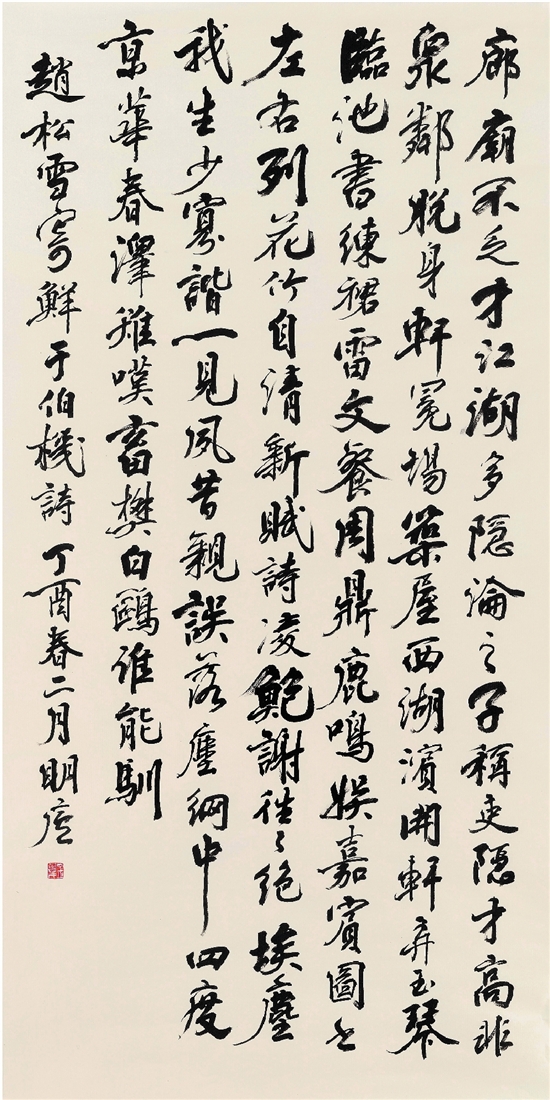 廊廟不乏才江湖多隱淪之子稱吏隱才高非
衆鄰脫身軒冕場築屋西湖濱開軒弄玉琴
臨池書練裙雷文粲周鼎鹿鳴娛嘉賓圖書
左右列花竹自清新賦詩凌鮑謝往々絕埃塵
我生少寡諧一見夙昔親誤落塵網中四度
京華春澤雉嘆畜樊白鷗誰能馴
趙松雪寄鮮于伯機詩丁酉春二月明